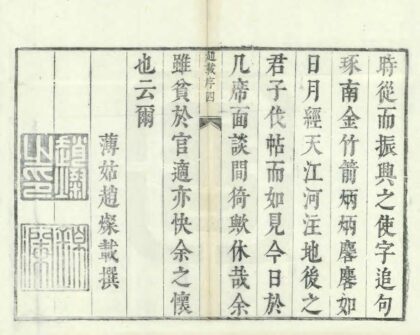 時從而振興之使字追句
琢南金竹箭炳炳麐麐如
日月經天江河注地後之
君子伐帖而如見今日於
几席面談間猗歟休哉余
趙載序四
雖貧於官適亦快余之懷
也云爾
薄姑趙燦載撰
趙燦之印